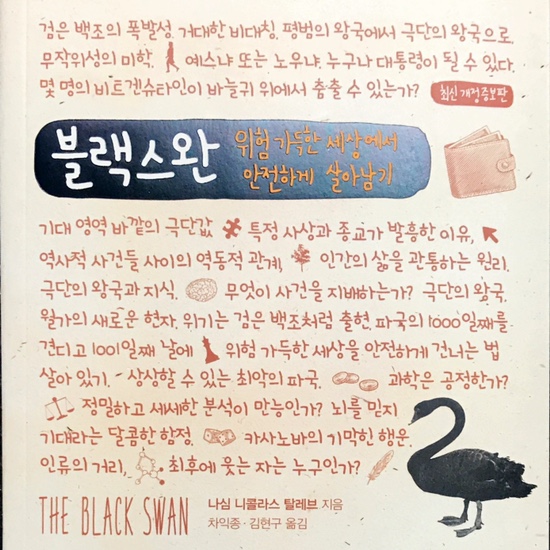 검은 백조의 폭발성. 거대한 비대칭. 평범의 왕국에서 극단의 왕국으로.
무작위성의 미학. 예스냐 또는 노우냐. 누구나 대통령이 될 수 있다.
몇 명의 비트겐슈타인이 바늘귀 위에서 춤출 수 있는가? 최신 개정증보판
블랙스완 위험 가득한 세상에서
안전하게 살아남기
기대 영역 바깥의 극단값. 특정 사상과 종교가 발흥한 이유,
역사적 사건들 사이의 역동적 관계, 인간의 삶을 관통하는 원리.
극단의 왕국과 지식. 무엇이 사건을 지배하는가? 극단의 왕국.
월가의 새로운 현자. 위기는 검은 백조처럼 출현. 파국의 1000일째를
견디고 1001일째 날에 위험 가득한 세상을 안전하게 건너는 법
살아 있기. 상상할 수 있는 최악의 파국. 과학은 공정한가?
정밀하고 세세한 분석이 만능인가? 뇌를 믿지
기대라는 달콤한 함정. 카사노바의 기막힌 행운.
인류의 거리, 최후에 웃는 자는 누구인가?
THE BLACK SWAN 나심 니콜라스 탈레브 지음
차익종·김현구 옮김